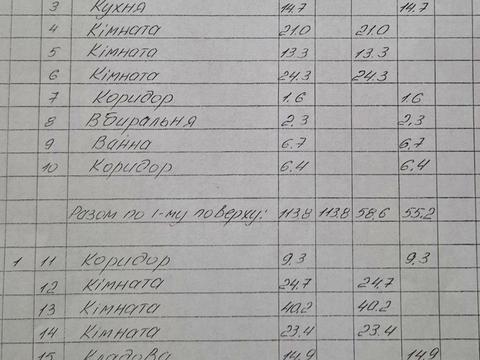 3 Кухня 14.7 14.7
4 Кімната 21.0 21.0
5 Кімната 13.3 13.3
6 Кімната 24.3 24.3
7 Коридор 1.6 1.6
8 Вбиральня 2.3 2.3
9 Ванна 6.7 6.7
10 Коридор 6.4 6.4
Разом по 1-му поверху: 113.8 113.8 58.6 55.2
1 11 Коридор 9.3 9.3
12 Кімната 24.7 24.7
13 Кімната 40.2 40.2
14 Кімната 23.4 23.4
15 Кладова 14.9 14.9